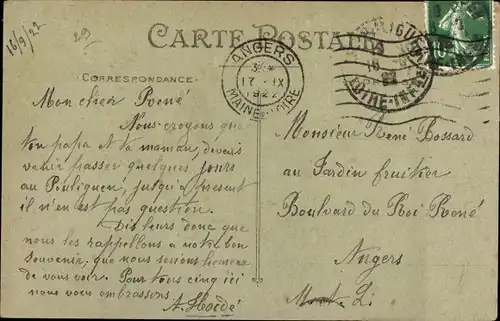 16/9/22
29
CARTE POSTALE
CORRESPONDANCE
ANGERS
17 - IX
1922
MAINE-ET-LOIRE
Mon cher René
Nous croyons que
ton papa et ta maman, devais
venir passer quelques jours
au Pouliguen, jusqu'à présent
il n'en est pas question.
Dis leurs donc que
nous les rappellons a notre bon
souvenir, que nous serions heureux
de vous voir. Pour tous cinq ici
nous vous embrassons
Monsieur René Bossard
au Jardin fruitier
Boulvard du Roi René
Angers